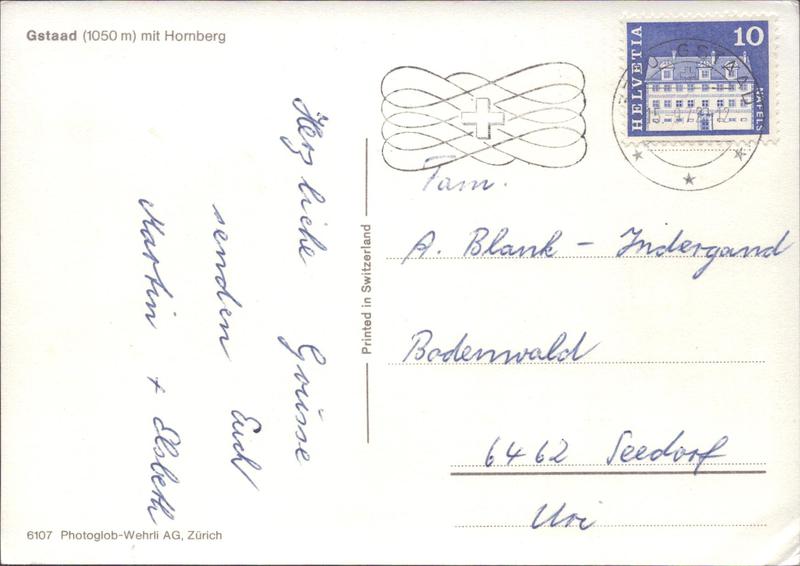 Gstaad (1050 m) mit Hornberg
Herzliche Grüsse
senden Euch
Martin + Elsbeth
6107 Photoglob-Wehrli AG, Zürich
Printed in Switzerland
HELVETIA
10
NÄFELS
GSTAAD
Fam.
A. Blank - Indergand
Bodenwald
6462 Seedorf
Uri